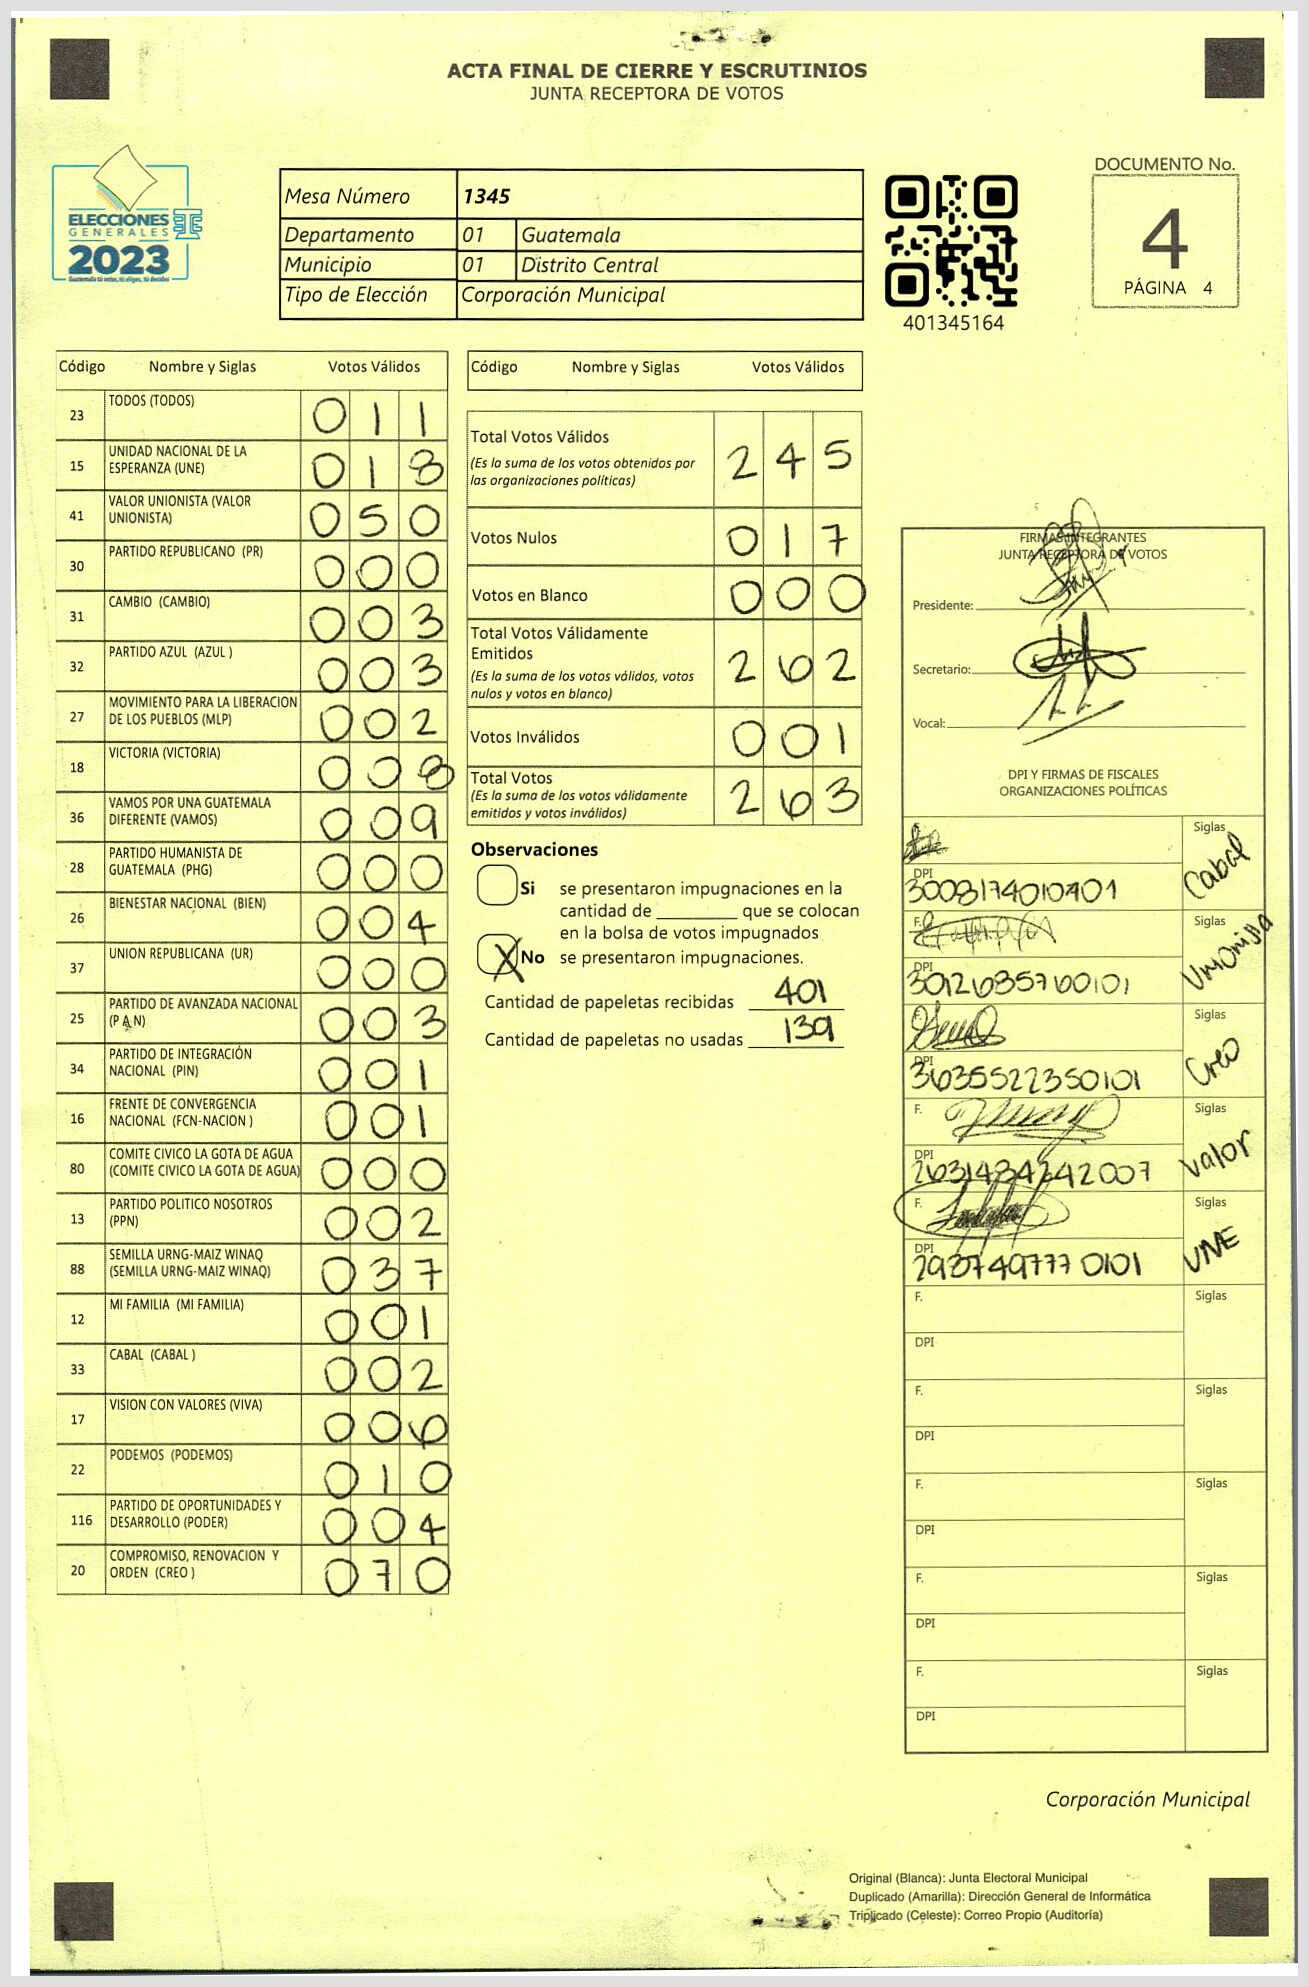 ACTA FINAL DE CIERRE Y ESCRUTINIOS
JUNTA RECEPTORA DE VOTOS
ELECCIONES
GENERALES
2023
Mesa Número 1345
Departamento 01 Guatemala
Municipio 01 Distrito Central
Tipo de Elección Corporación Municipal
401345164
DOCUMENTO No.
4
PÁGINA 4
Código Nombre y Siglas Votos Válidos
23 TODOS (TODOS) 011
15 UNIDAD NACIONAL DE LA
ESPERANZA (UNE) 018
41 VALOR UNIONISTA (VALOR
UNIONISTA) 050
30 PARTIDO REPUBLICANO (PR) 000
31 CAMBIO (CAMBIO) 003
32 PARTIDO AZUL (AZUL ) 003
27 MOVIMIENTO PARA LA LIBERACION
DE LOS PUEBLOS (MLP) 002
18 VICTORIA (VICTORIA) 008
36 VAMOS POR UNA GUATEMALA
DIFERENTE (VAMOS) 009
28 PARTIDO HUMANISTA DE
GUATEMALA (PHG) 000
26 BIENESTAR NACIONAL (BIEN) 004
37 UNION REPUBLICANA (UR) 000
25 PARTIDO DE AVANZADA NACIONAL
(P A N) 003
34 PARTIDO DE INTEGRACIÓN
NACIONAL (PIN) 001
16 FRENTE DE CONVERGENCIA
NACIONAL (FCN-NACION ) 001
80 COMITE CIVICO LA GOTA DE AGUA
(COMITE CIVICO LA GOTA DE AGUA) 000
13 PARTIDO POLITICO NOSOTROS
(PPN) 002
88 SEMILLA URNG-MAIZ WINAQ
(SEMILLA URNG-MAIZ WINAQ) 037
12 MI FAMILIA (MI FAMILIA) 001
33 CABAL (CABAL ) 002
17 VISION CON VALORES (VIVA) 006
22 PODEMOS (PODEMOS) 010
116 PARTIDO DE OPORTUNIDADES Y
DESARROLLO (PODER) 004
20 COMPROMISO, RENOVACION Y
ORDEN (CREO ) 070
Código Nombre y Siglas Votos Válidos
Total Votos Válidos 245
(Es la suma de los votos obtenidos por
las organizaciones políticas)
Votos Nulos 017
Votos en Blanco 000
Total Votos Válidamente
Emitidos 262
(Es la suma de los votos válidos, votos
nulos y votos en blanco)
Votos Inválidos 001
Total Votos 263
(Es la suma de los votos válidamente
emitidos y votos inválidos)
Observaciones
Si se presentaron impugnaciones en la
cantidad de ________ que se colocan
en la bolsa de votos impugnados
X No se presentaron impugnaciones.
Cantidad de papeletas recibidas 401
Cantidad de papeletas no usadas 139
FIRMAS INTEGRANTES
JUNTA RECEPTORA DE VOTOS
Presidente:
Secretario:
Vocal:
DPI Y FIRMAS DE FISCALES
ORGANIZACIONES POLÍTICAS
Siglas Cabal
DPI
F. Siglas Unionista
DPI 3012635760101
Siglas Creo
DPI 3635522350101
F. Siglas Valor
DPI
F. Siglas UNE
DPI 2937497770101
F. Siglas
DPI
F. Siglas
DPI
F. Siglas
DPI
F. Siglas
DPI
F. Siglas
DPI
Corporación Municipal
Original (Blanca): Junta Electoral Municipal
Duplicado (Amarilla): Dirección General de Informática
Triplicado (Celeste): Correo Propio (Auditoría)